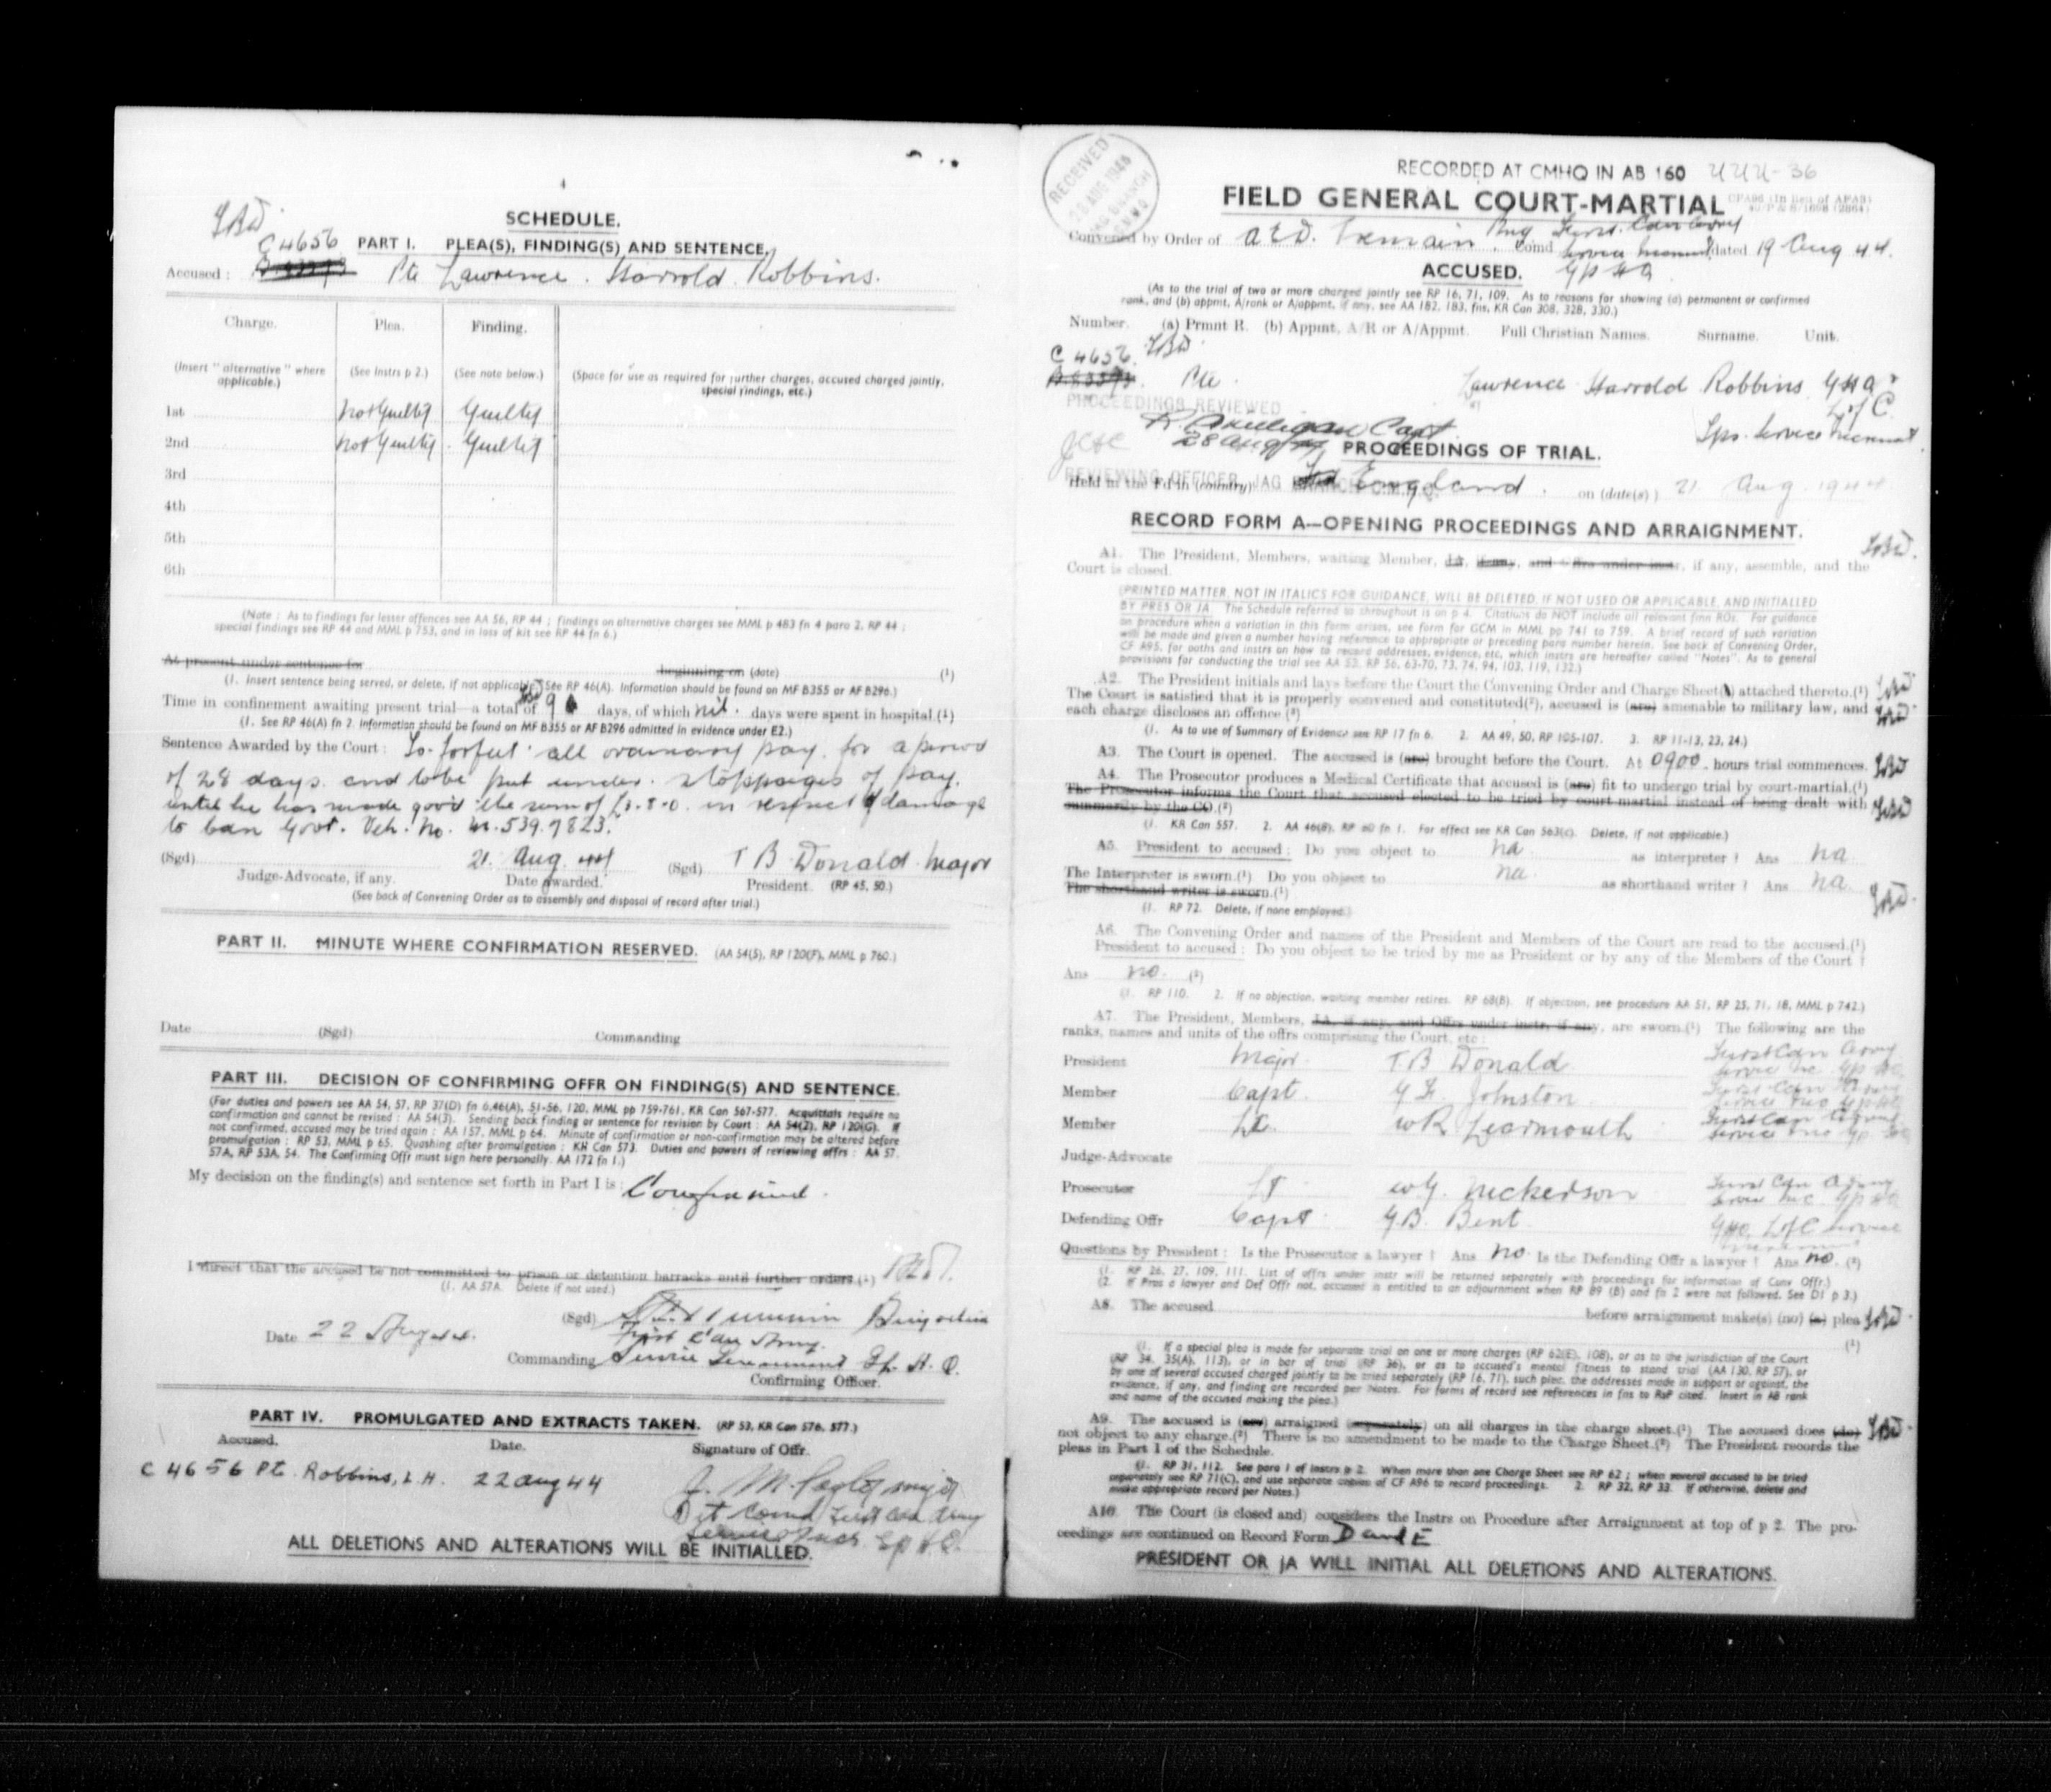 4
SCHEDULE.
C 4656 PART I. PLEA(S), FINDING(S) AND SENTENCE.
Accused: Pte Lawrence Harrold Robbins.
Charge. Plea. Finding.
(Insert "alternative" where applicable.) (See Instrs p 2.) (See note below.) (Space for use as required for further charges, accused charged jointly, special findings, etc.)
1st not Guilty Guilty
2nd not Guilty Guilty
3rd
4th
5th
6th
(Note: As to findings for lesser offences see AA 56, RP 44; findings on alternative charges see MML p 483 fn 4 para 2, RP 44;
special findings see RP 44 and MML p 753, and in loss of kit see RP 44 fn 6.)
At present under sentence for beginning on (date) (1)
(1. Insert sentence being served, or delete, if not applicable. See RP 46(A). Information should be found on MF B355 or AF B296.)
Time in confinement awaiting present trial—a total of 9 days, of which nil. days were spent in hospital.(1)
(1. See RP 46(A) fn 2. Information should be found on MF B355 or AF B296 admitted in evidence under E2.)
Sentence Awarded by the Court: To forfeit all ordinary pay for a period
of 28 days and to be put under stoppages of pay
until he has made good the sum of in respect of damage
to Can Govt. Veh. No. 539.7823.
(Sgd) 21 Aug 44 (Sgd) T B Donald Major
Judge-Advocate, if any. Date awarded. President. (RP 45, 50.)
(See back of Convening Order as to assembly and disposal of record after trial.)
PART II. MINUTE WHERE CONFIRMATION RESERVED. (AA 54(5), RP 120(F), MML p 760.)
Date (Sgd) Commanding
PART III. DECISION OF CONFIRMING OFFR ON FINDING(S) AND SENTENCE.
(For duties and powers see AA 54, 57, RP 37(D) fn 6,46(A), 51-56, 120, MML pp 759-761, KR Can 567-577. Acquittals require no
confirmation and cannot be revised: AA 54(3). Sending back finding or sentence for revision by Court: AA 54(2), RP 120(G). If
not confirmed, accused may be tried again: AA 157, MML p 64. Minute of confirmation or non-confirmation may be altered before
promulgation: RP 53, MML p 65. Quashing after promulgation: KR Can 573. Duties and powers of reviewing offrs: AA 57,
57A, RP 53A, 54. The Confirming Offr must sign here personally. AA 172 fn 1.)
My decision on the finding(s) and sentence set forth in Part I is: Confirmed.
I direct that the accused be not committed to prison or detention barracks until further orders.(1)
(1. AA 57A. Delete if not used.)
(Sgd) Brigadier
First Can Army
Date 22 Aug 44. Commanding Gp. H. Q.
Confirming Officer.
PART IV. PROMULGATED AND EXTRACTS TAKEN. (RP 53, KR Can 576, 577.)
Accused. Date. Signature of Offr.
C 4656 Pte Robbins, L.H. 22 Aug 44
ALL DELETIONS AND ALTERATIONS WILL BE INITIALLED.
RECEIVED
RECORDED AT CMHQ IN AB 160
FIELD GENERAL COURT-MARTIAL
Convened by Order of Comd dated 19 Aug 44.
ACCUSED. Gp HQ
(As to the trial of two or more charged jointly see RP 16, 71, 109. As to reasons for showing (a) permanent or confirmed
rank, and (b) appmt, A/rank or A/appmt, if any, see AA 182, 183, fns, KR Can 308, 328, 330.)
Number. (a) Prmnt R. (b) Appmt, A/R or A/Appmt. Full Christian Names. Surname. Unit.
C 4656
Pte. Lawrence Harrold Robbins
L of C
PROCEEDINGS REVIEWED
Capt
28 Aug
PROCEEDINGS OF TRIAL.
REVIEWING OFFICER, JAG
Held in the Fd in (country) England. on (date(s)) 21 Aug 1944
RECORD FORM A—OPENING PROCEEDINGS AND ARRAIGNMENT.
A1. The President, Members, waiting Member, JA, if any, and Offrs under instr, if any, assemble, and the
Court is closed.
(PRINTED MATTER, NOT IN ITALICS FOR GUIDANCE, WILL BE DELETED, IF NOT USED OR APPLICABLE, AND INITIALLED
BY PRES OR JA. The Schedule referred to throughout is on p 4. Citations do NOT include all relevant fnn ROs. For guidance
on procedure when a variation in this form arises, see form for GCM in MML pp 741 to 759. A brief record of such variation
will be made and given a number having reference to appropriate or preceding para number herein. See back of Convening Order,
CF A95, for oaths and instrs on how to record addresses, evidence, etc, which instrs are hereafter called "Notes". As to general
provisions for conducting the trial see AA 53, RP 56, 63-70, 73, 74, 94, 103, 119, 132.)
A2. The President initials and lays before the Court the Convening Order and Charge Sheet(s) attached thereto.(1)
The Court is satisfied that it is properly convened and constituted(2), accused is (are) amenable to military law, and
each charge discloses an offence.(3)
(1. As to use of Summary of Evidence see RP 17 fn 6. 2. AA 49, 50, RP 105-107. 3. RP 11-13, 23, 24.)
A3. The Court is opened. The accused is (are) brought before the Court. At 0900 hours trial commences.
A4. The Prosecutor produces a Medical Certificate that accused is (are) fit to undergo trial by court-martial.(1)
The Prosecutor informs the Court that accused elected to be tried by court-martial instead of being dealt with
summarily by the CO.(2)
(1. KR Can 557. 2. AA 46(8), RP fn 1. For effect see KR Can 563(c). Delete, if not applicable.)
A5. President to accused: Do you object to na as interpreter? Ans na
The Interpreter is sworn.(1) Do you object to na as shorthand writer? Ans na.
The shorthand writer is sworn.(1)
(1. RP 72. Delete, if none employed.)
A6. The Convening Order and names of the President and Members of the Court are read to the accused.(1)
President to accused: Do you object to be tried by me as President or by any of the Members of the Court?
Ans no. (2)
(1. RP 110. 2. If no objection, waiting member retires. RP 68(B). If objection, see procedure AA 51, RP 25, 71, 18, MML p 742.)
A7. The President, Members, JA, if any, and Offrs under instr, if any, are sworn.(1) The following are the
ranks, names and units of the offrs comprising the Court, etc:
President Major T B Donald First Can Army
Member Capt. Johnston
Member Lt. W R Learmouth
Judge-Advocate
Prosecutor Lt W G Nickerson First Can Army
Defending Offr Capt G B Bent
Questions by President: Is the Prosecutor a lawyer? Ans no Is the Defending Offr a lawyer? Ans no. (2)
(1. RP 26, 27, 109, 111. List of offrs under instr will be returned separately with proceedings for information of Conv Offr.)
(2. If Pros a lawyer and Def Offr not, accused is entitled to an adjournment when RP 89 (B) and fn 2 were not followed. See D1 p 3.)
A8. The accused before arraignment make(s) (no) (a) plea
(1)
(1. If a special plea is made for separate trial on one or more charges (RP 62(E), 108), or as to the jurisdiction of the Court
(RP 34, 35(A), 113), or in bar of trial (RP 36), or as to accused's mental fitness to stand trial (AA 130, RP 57), or
by one of several accused charged jointly to be tried separately (RP 16, 71), such plea, the addresses made in support or against, the
evidence, if any, and finding are recorded per Notes. For forms of record see references in fns to RsP cited. Insert in A8 rank
and name of the accused making the plea.)
A9. The accused is (are) arraigned (separately) on all charges in the charge sheet.(1) The accused does (do)
not object to any charge.(2) There is no amendment to be made to the Charge Sheet.(2) The President records the
pleas in Part I of the Schedule.
(1. RP 31, 112. See para 1 of Instrs p 2. When more than one Charge Sheet see RP 62; when several accused to be tried
separately see RP 71(C), and use separate copies of CF A96 to record proceedings. 2. RP 32, RP 33. If otherwise, delete and
make appropriate record per Notes.)
A10. The Court (is closed and) considers the Instrs on Procedure after Arraignment at top of p 2. The pro-
ceedings are continued on Record Form D and E
PRESIDENT OR JA WILL INITIAL ALL DELETIONS AND ALTERATIONS.